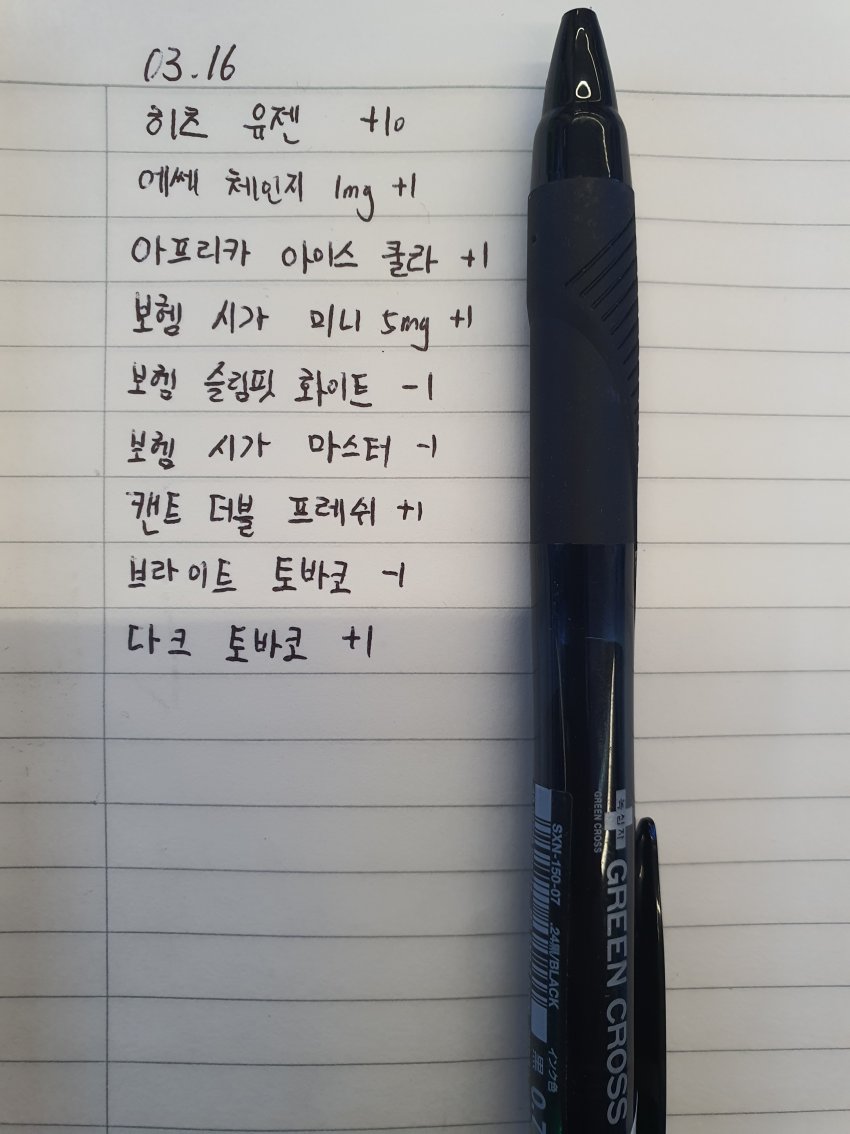 03.16
히츠 유젠 +10
에쎄 체인지 1mg +1
아프리카 아이스 쿨라 +1
보헴 시가 미니 5mg +1
보헴 슬림핏 화이트 -1
보헴 시가 마스터 -1
캔트 더블 프레쉬 +1
브라이트 토바코 -1
다크 토바코 +1
녹십자 GREEN CROSS
GREEN CROSS
SXN-150-07 .24 /BLACK
インク色 黒
0.7